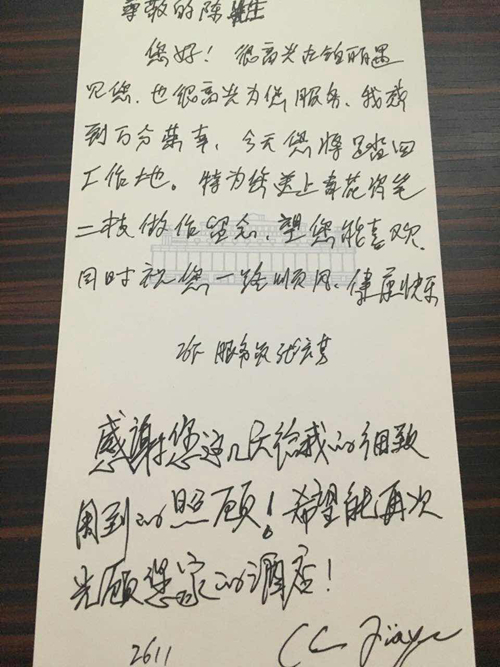 尊敬的陈先生
您好！很高兴在铂丽遇
见您，也很高兴为您服务，我感
到万分荣幸，今天您将要踏回
工作地。特为您送上青花瓷笔
二枝做作留念，望您能喜欢，
同时祝您一路顺风、健康快乐
26F 服务员
感謝您这几天给我的细致
周到的照顾！希望能再次
光顾您家的酒店！
2611